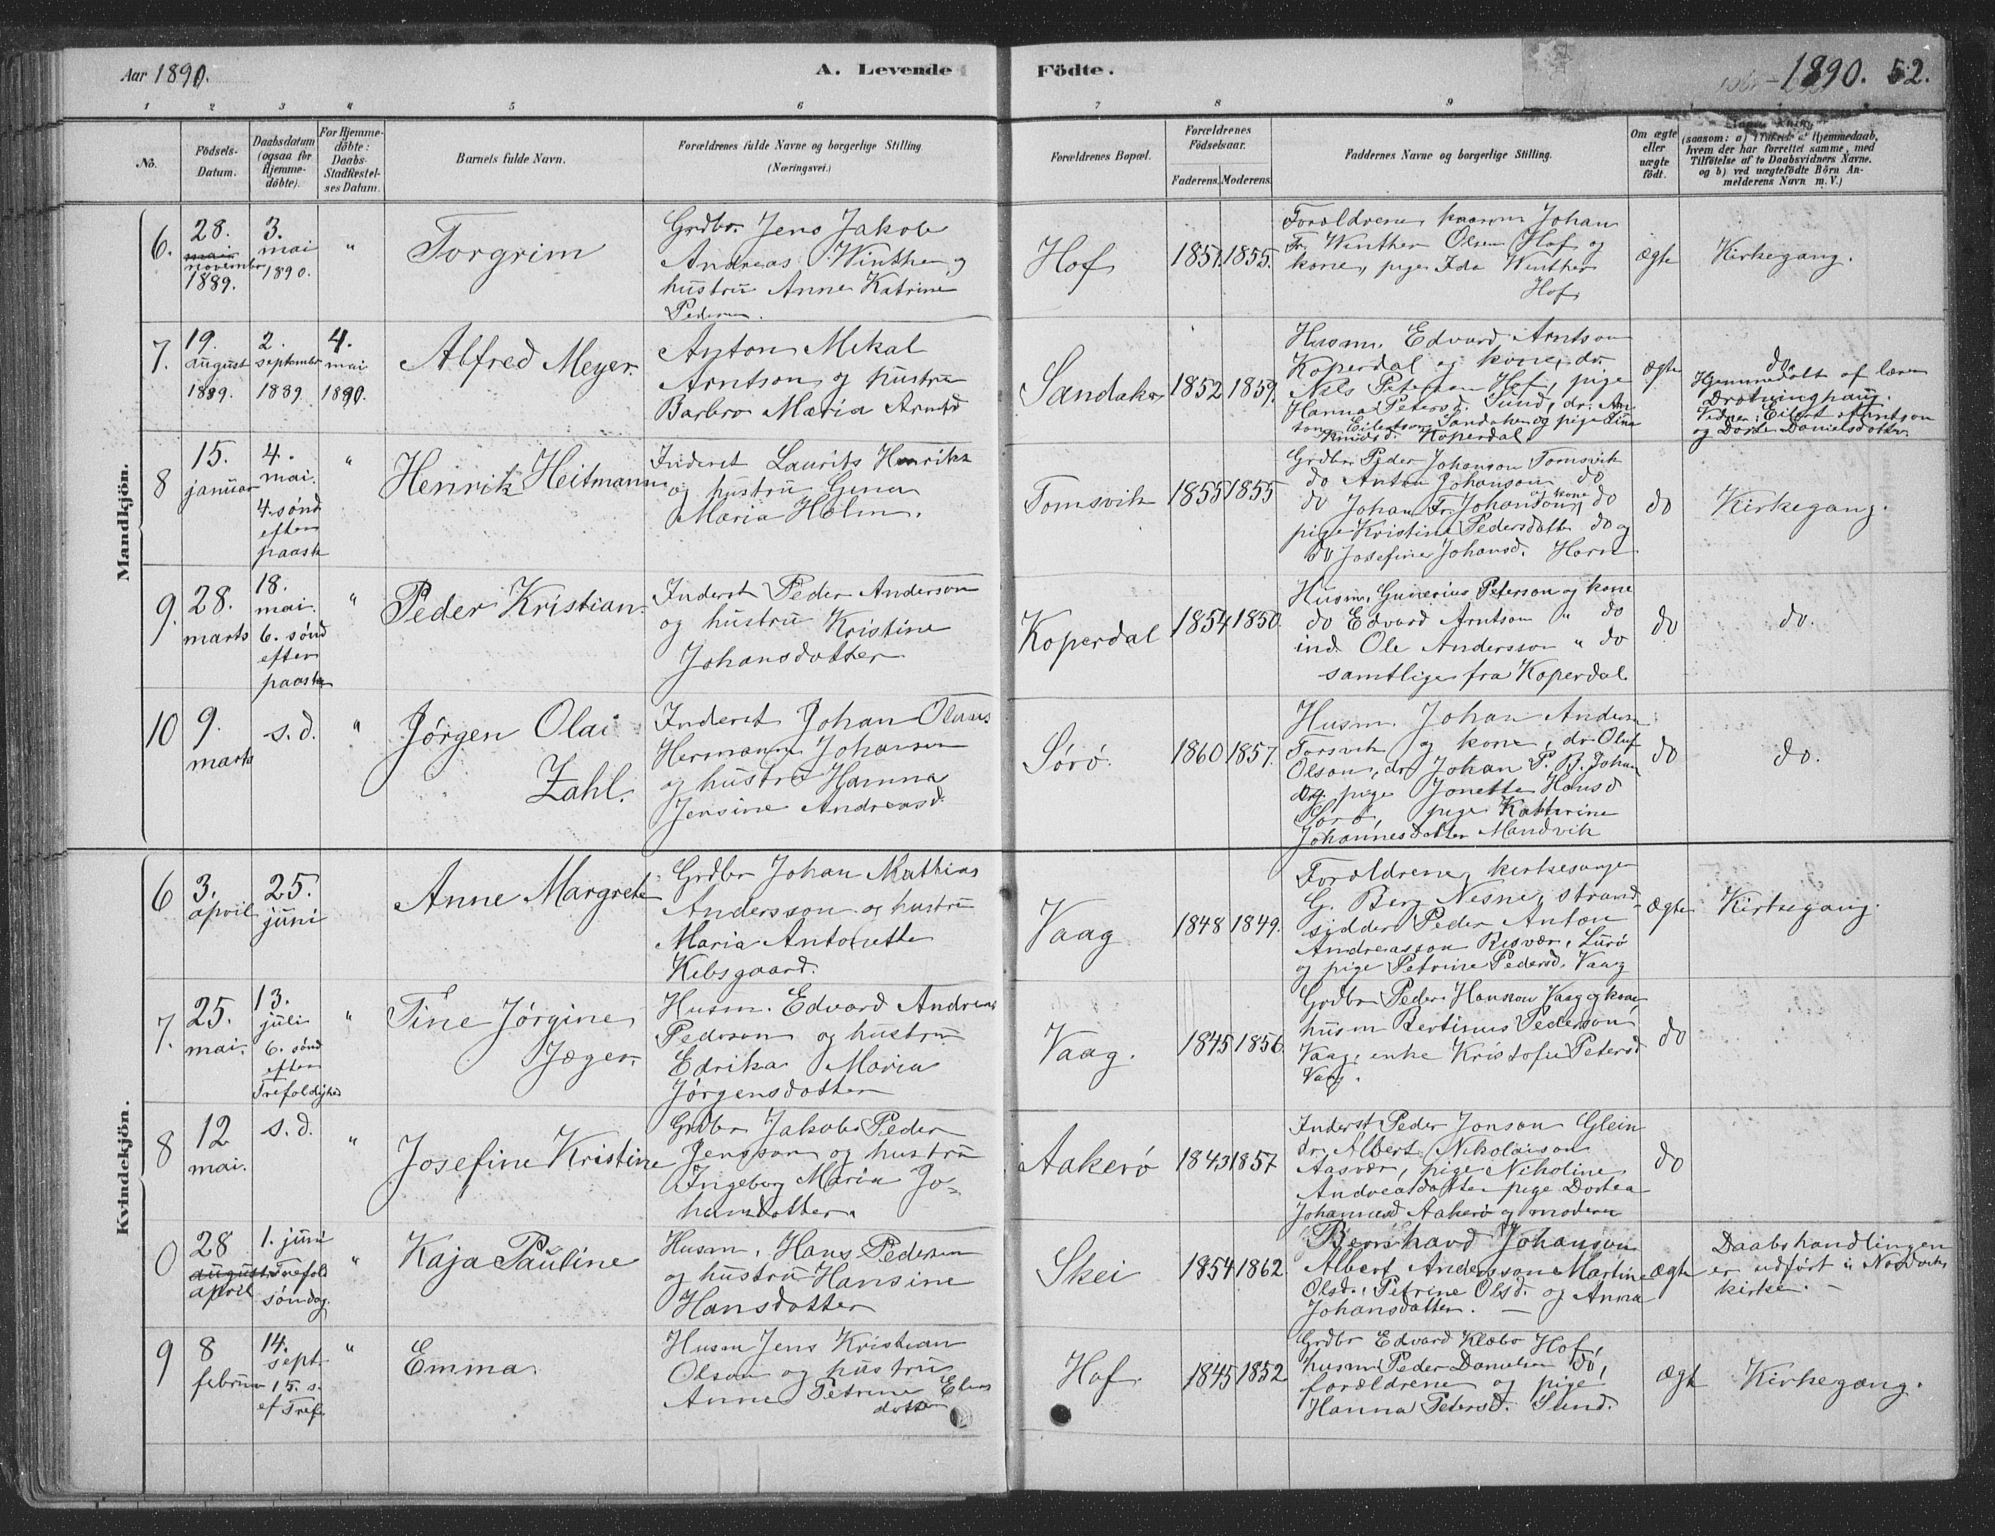 Aar 1890.
A. Levende
Födte.
1890. 52.
1 2 3 4 5 6 7 8 9
No.
Födsels-Datum.
Daabsdatum (ogsaa for Hjemme-döbte).
For Hjemme-döbte: Daabs-Stadfæstel-ses Datum.
Barnets fulde Navn.
Forældrenes fulde Navne og borgerlige Stilling (Næringsvei.)
Forældrenes Bopæl.
Forældrenes Födselsaar.
Faderens. Moderens.
Faddernes Navne og borgerlige Stilling.
Om ægte eller uægte födt.
(saasom: a) Tilfælde af Hjemmedaab, hvem der har forrettet samme, med Tilföielse af to Daabsvidners Navne. og b) ved uægtefödte Börn An-melderens Navn m. V.)
Mandkjön.
6.
28.
novembr
1889.
3.
mai
1890.
"
Torgrim
Grdbr. Jens Jakob
Andreas Winther og
hustru Anne Katrine
Pedersen.
Hof
1851. 1855.
Forældrene, kaarm Johan
Fr. Winther Olsen Hof og
kone, pige Ida Winther
Hof
ægte
Kirkegang.
7.
19.
august
1889.
2.
septembr
1889
4.
mai
1890.
Alfred Meyer.
Anton Mikal
Arntson og hustru
Barbro Maria Arntsd
Sandaker
1852 1859.
Husm. Edvard Arntson
Koperdal og kone, dr.
Nils Peterson Hof, pige
Hanna Petersd. Sund, dr. An-
ton Eilertson Sandaker og pige Lina
Knudsd. Koperdal
ægte
do
Hjemmedöbt af lærer
Drotninghaug.
Vidner: Eilert Arntson
og Dorte Danielsdotter.
8
15.
januar
4.
mai.
4. sönd
efter
paask
"
Henrik Heitmann
Inderst Laurits Henriks
og hustru Gina
Maria Holm.
Tomsvik
1855 1855
Grdbr Peder Johanson Tomsvik
do Anton Johanson do
do Johan Fr. Johanson og kone do
pige Kristine Pedersdatter do og
do Josefine Johansd. Horn
do
Kirkegang.
9.
28.
marts
18.
mai.
6. sönd
efter
paaske
"
Peder Kristian
Inderst Peder Anderson
og hustru Kristine
Johansdotter
Koperdal
1854 1850.
Husm. Gunerius Peterson og kone
do Edvard Arntson " do
ind. Ole Andersson " do
samtlige fra Koperdal
do
do.
10
9.
marts
s. d.
"
Jørgen Olai
Zahl.
Inderst Johan Olaus
Hermann Johansen
og hustru Hanna
Jensine Andreasd.
Sørø.
1860 1857.
Husm. Johan Anders.
Torsvik og kone, dr. Oluf
Olson, dr Johan P. B. Johan
og pige Jonette Hansd
Sørø, pige Katherine
Johannesdotter Mandvik
do
do.
Kvindekjön.
6
3.
april
25.
juni
Anne Margrete
Grdbr Johan Mathias
Andersson og hustru
Maria Antonette
Kibsgaard.
Vaag
1848 1849.
Forældrene, kirkesanger
G. Berg Nesne, strand-
sidder Peder Anton
Andreasson Risvær, Lurø
og pige Petrine Pedersd. Vaag
ægte
Kirkegang.
7.
25.
mai.
13.
juli
6. sönd
efter
Trefoldighed
"
Tine Jørgine
Jæger.
Husm. Edvard Andreas
Pederson og hustru
Edrika Maria
Jørgensdotter
Vaag.
1845 1856.
Grdbr Peder Hanson Vaag og kone
husm Bertinus Pederson
Vaag, enke Kristofie Petersd
Vaag.
do
8
12
mai.
s. d.
"
Josefine Kristine
Grdbr Jakob Peder
Jensson og hustru
Ingeborg Maria Jo-
hansdotter.
Aakerö
1843 1857
Inderst Peder Jonson Glein
dr. Albert Nikolaison
Aasvær, pige Nikoline
Andreasdotter pige Dortea
Johannesd Aakerö og moderen
do
0
28
april
1. juni
Trefold
söndag.
"
Kaja Pauline
Husm. Hans Pedersen
og hustru Hansine
Hansdotter
Skei
1854 1862
Bernhard Johanson
Albert Andersson Martine
Olsd. Petrine Olsd. og Anna
Johansdotter. —
ægte
Daabshandlingen
er udfört i Nordviks
kirke. —
9
8
februar
14.
sept.
15. s.
ef Tref.
"
Emma.
Husm Jens Kristian
Olson og hustru
Anne Petrine Elias
dotter
Hof.
1845 1852
Grdbr Edvard Klæbo Hof,
husm Peder Danielsen do,
forældrene og pige
Hanna Petersd. Sund.
ægte
Kirkegang.